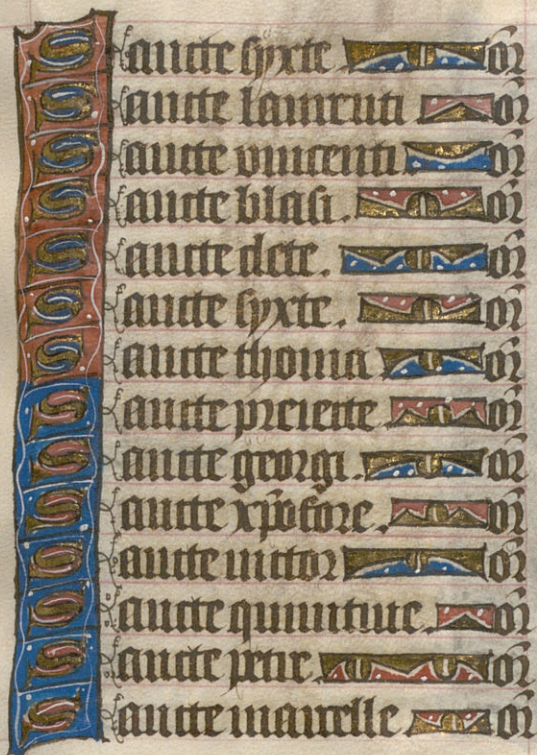 Sancte syxte or
Sancte laurenti or
Sancte vincenti or
Sancte blasi or
Sancte clete. or
Sancte syxte. or
Sancte thoma or
Sancte preiecte or
Sancte georgi. or
Sancte xpofore. or
Sancte victor or
Sancte quintine or
Sancte petre or
Sancte marcelle or